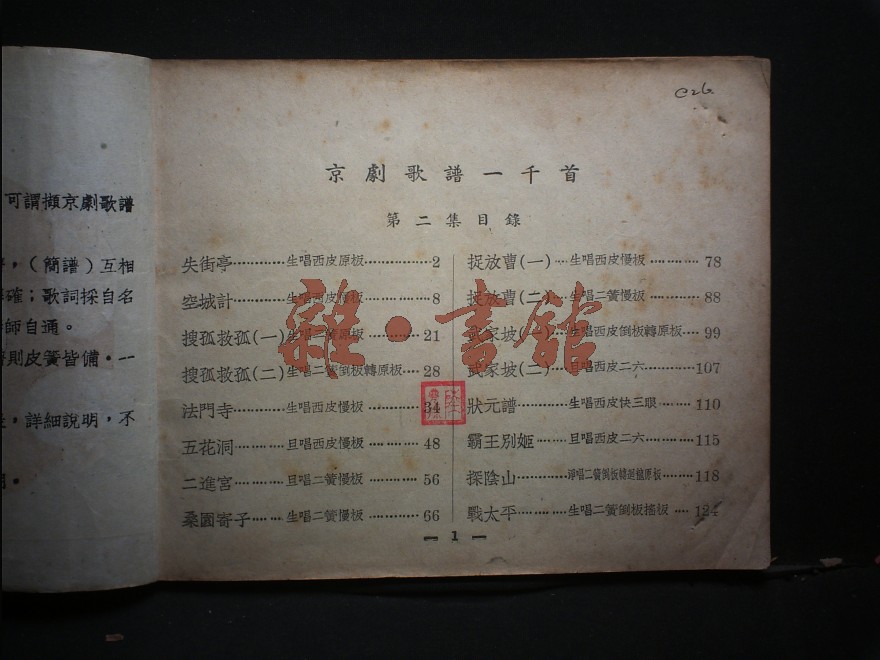 可謂擷京劇歌譜
，（簡譜）互相
確；歌詞採自名
師自通。
則皮簧皆備。一
，詳細說明，不
C26
京劇歌譜一千首
第二集目錄
失街亭…………生唱西皮原板…………2
空城計…………生唱西皮慢板…………8
搜孤救孤(一)生唱二簧原板…………21
搜孤救孤(二)生唱二簧倒板轉原板…28
法門寺…………生唱西皮慢板…………34
五花洞…………旦唱西皮慢板…………48
二進宮…………旦唱二簧慢板…………56
桑園寄子………生唱二簧慢板…………66
捉放曹(一)…生唱西皮慢板…………78
捉放曹(二)…生唱二簧慢板…………88
武家坡(一)…生唱西皮倒板轉原板…99
武家坡(二)…旦唱西皮二六…………107
狀元譜…………生唱西皮快三眼………110
霸王別姬………旦唱西皮二六…………115
探陰山…………淨唱二簧倒板轉迴龍原板………118
戰太平…………生唱二簧倒板搖板…124
— 1 —
雜·書館